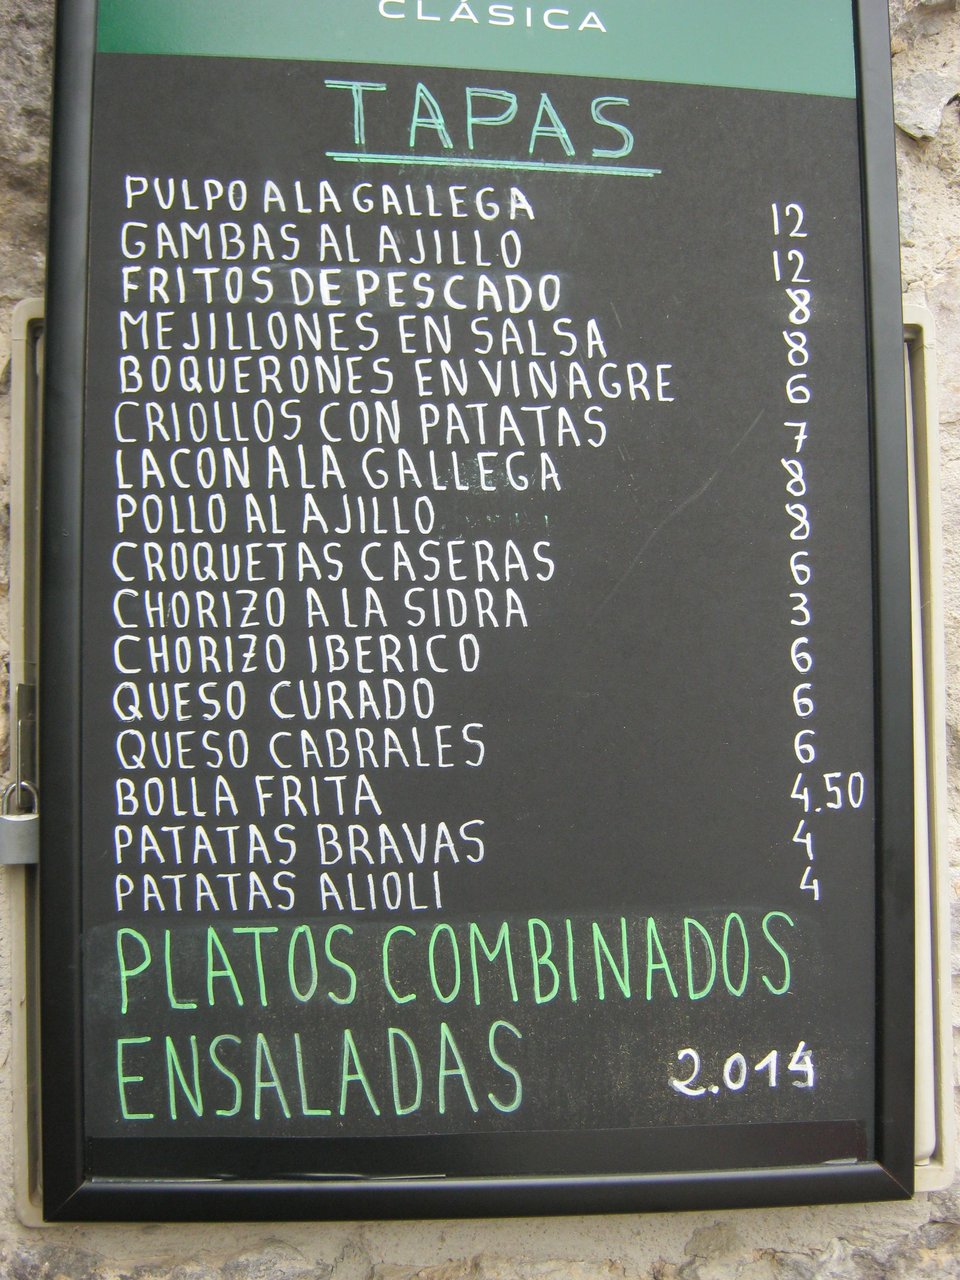 CLÁSICA
TAPAS
PULPO A LA GALLEGA 12
GAMBAS AL AJILLO 12
FRITOS DE PESCADO 8
MEJILLONES EN SALSA 8
BOQUERONES EN VINAGRE 6
CRIOLLOS CON PATATAS 7
LACON A LA GALLEGA 8
POLLO AL AJILLO 8
CROQUETAS CASERAS 6
CHORIZO A LA SIDRA 3
CHORIZO IBERICO 6
QUESO CURADO 6
QUESO CABRALES 6
BOLLA FRITA 4.50
PATATAS BRAVAS 4
PATATAS ALIOLI 4
PLATOS COMBINADOS
ENSALADAS